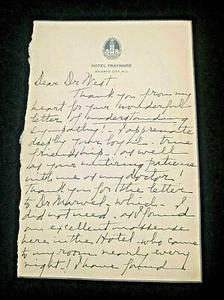 HOTEL TRAYMORE
ATLANTIC CITY, N.J.
Dear Dr West
Thank you from my
heart for your wonderful
letter of understanding
sympathy! - I appreciate
deeply your loyal & true
friendship, as well
by your untiring patience
with me as my doctor!
Thank you for the letter
to Dr Marvel, which I
did not need, as I found
an excellent masseuse
here in the Hotel who came
to my room nearly every
night! I have found